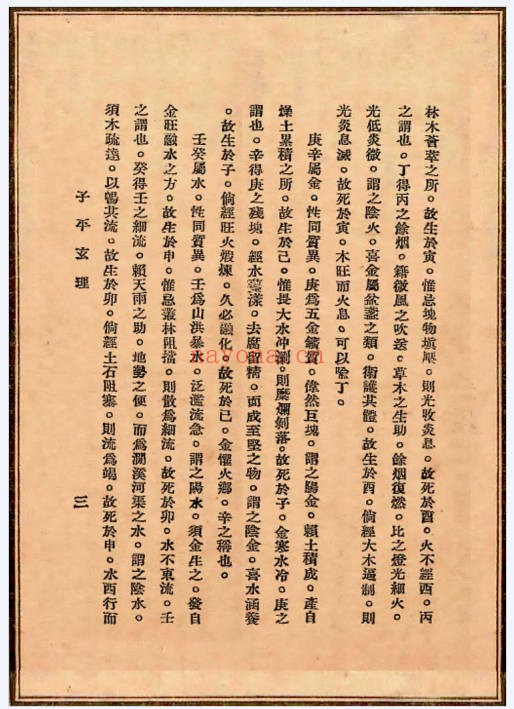 林木薈萃之所。故生於寅。惟忌塊物塡壓。則光收炎息。故死於酉。火不經酉。丙
之謂也。丁得丙之餘烟。藉微風之吹送。草木之生助。餘烟復燃。比之燈光細火。
光低炎微。謂之陰火。喜金屬盆盞之類。衛護其體。故生於酉。倘經大木遏制。則
光炎息滅。故死於寅。木旺而火息。可以喩丁。
庚辛屬金。性同質異。庚爲五金鑛質。偉然巨塊。謂之陽金。賴土積成。產自
燥土累積之所。故生於己。惟畏大水冲涮。則糜爛剝落。故死於子。金寒水冷。庚之
謂也。辛得庚之殘塊。經水蕩漾。去腐留精。而成至堅之物。謂之陰金。喜水涵養
。故生於子。倘經旺火煅煉。久必融化。故死於已。金懼火鄉。辛之稱也。
壬癸屬水。性同質異。壬爲山洪暴水。泛濫流急。謂之陽水。須金生之。發自
金旺融水之方。故生於申。惟忌叢林阻擋。則散爲細流。故死於卯。水不東流。壬
之謂也。癸得壬之細流。賴天雨之助。地勢之便。而爲澗溪河渠之水。謂之陰水。
須木疏達。以暢其流。故生於卯。倘經土石阻塞。則流爲竭。故死於申。水西行而
子平玄理
三
nayona.cn